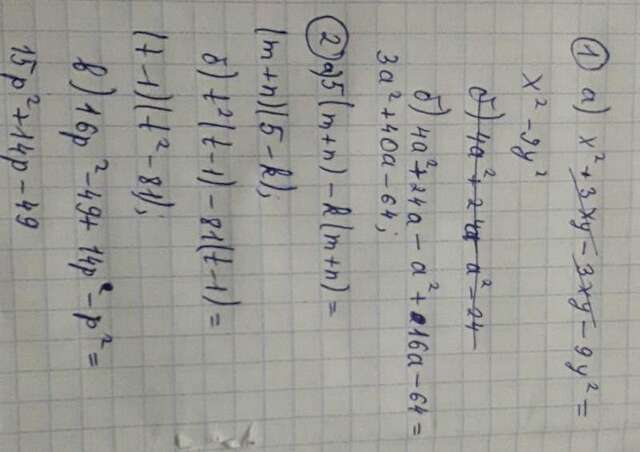 ① а) x² + 3xy - 3xy - 9y² =
x² - 9y²
б) 4a² + 24a - a² - 24
б) 4a² + 24a - a² + 16a - 64 =
3a² + 40a - 64;
② а) 5(m+n) - k(m+n) =
(m+n)(5-k);
б) t²(t-1) - 81(t-1) =
(t-1)(t² - 81);
в) 16p² - 49 + 14p - p² =
15p² + 14p - 49